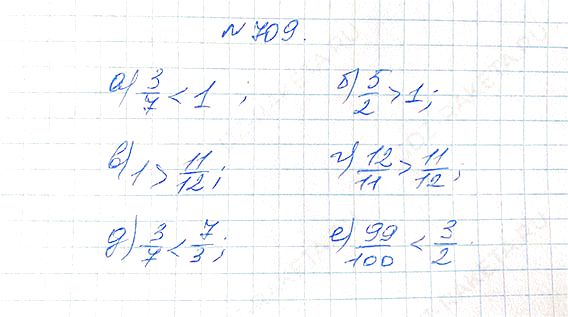 № 709.
а) 3/7 < 1 ; б) 5/2 > 1;
в) 1 > 11/12; г) 12/11 > 11/12;
д) 3/7 < 7/3; е) 99/100 < 3/2